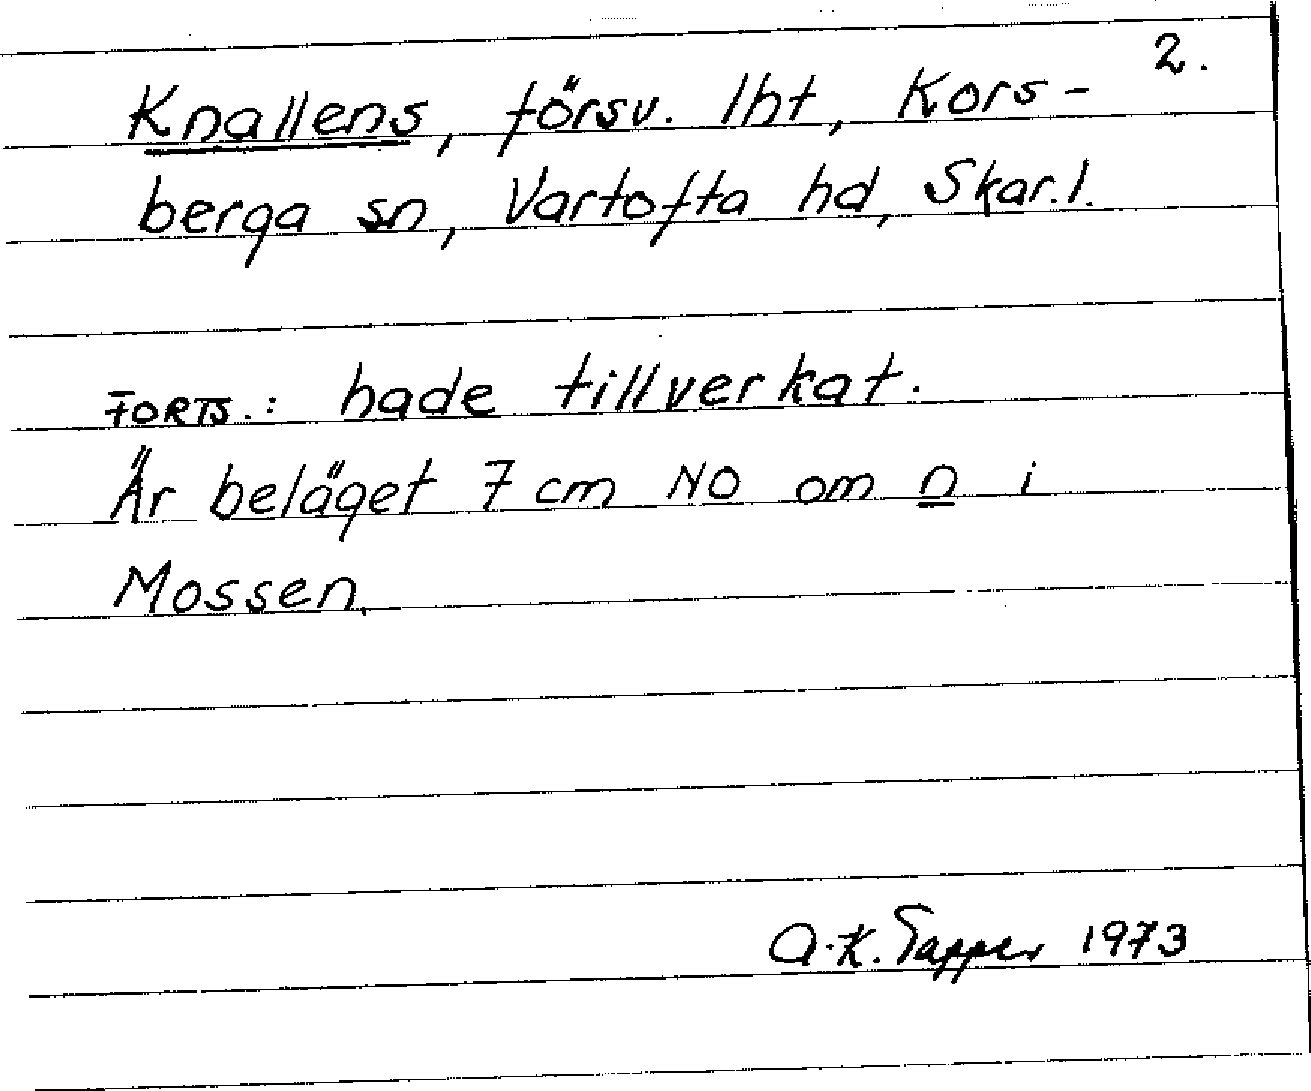 2.
Knallens, försv. lht, Kors-
berga sn, Vartofta hd, Skar.l.
FORTS.: hade tillverkat.
Är beläget 7 cm NO om n i
Mossen.
A.K. Tapper 1973